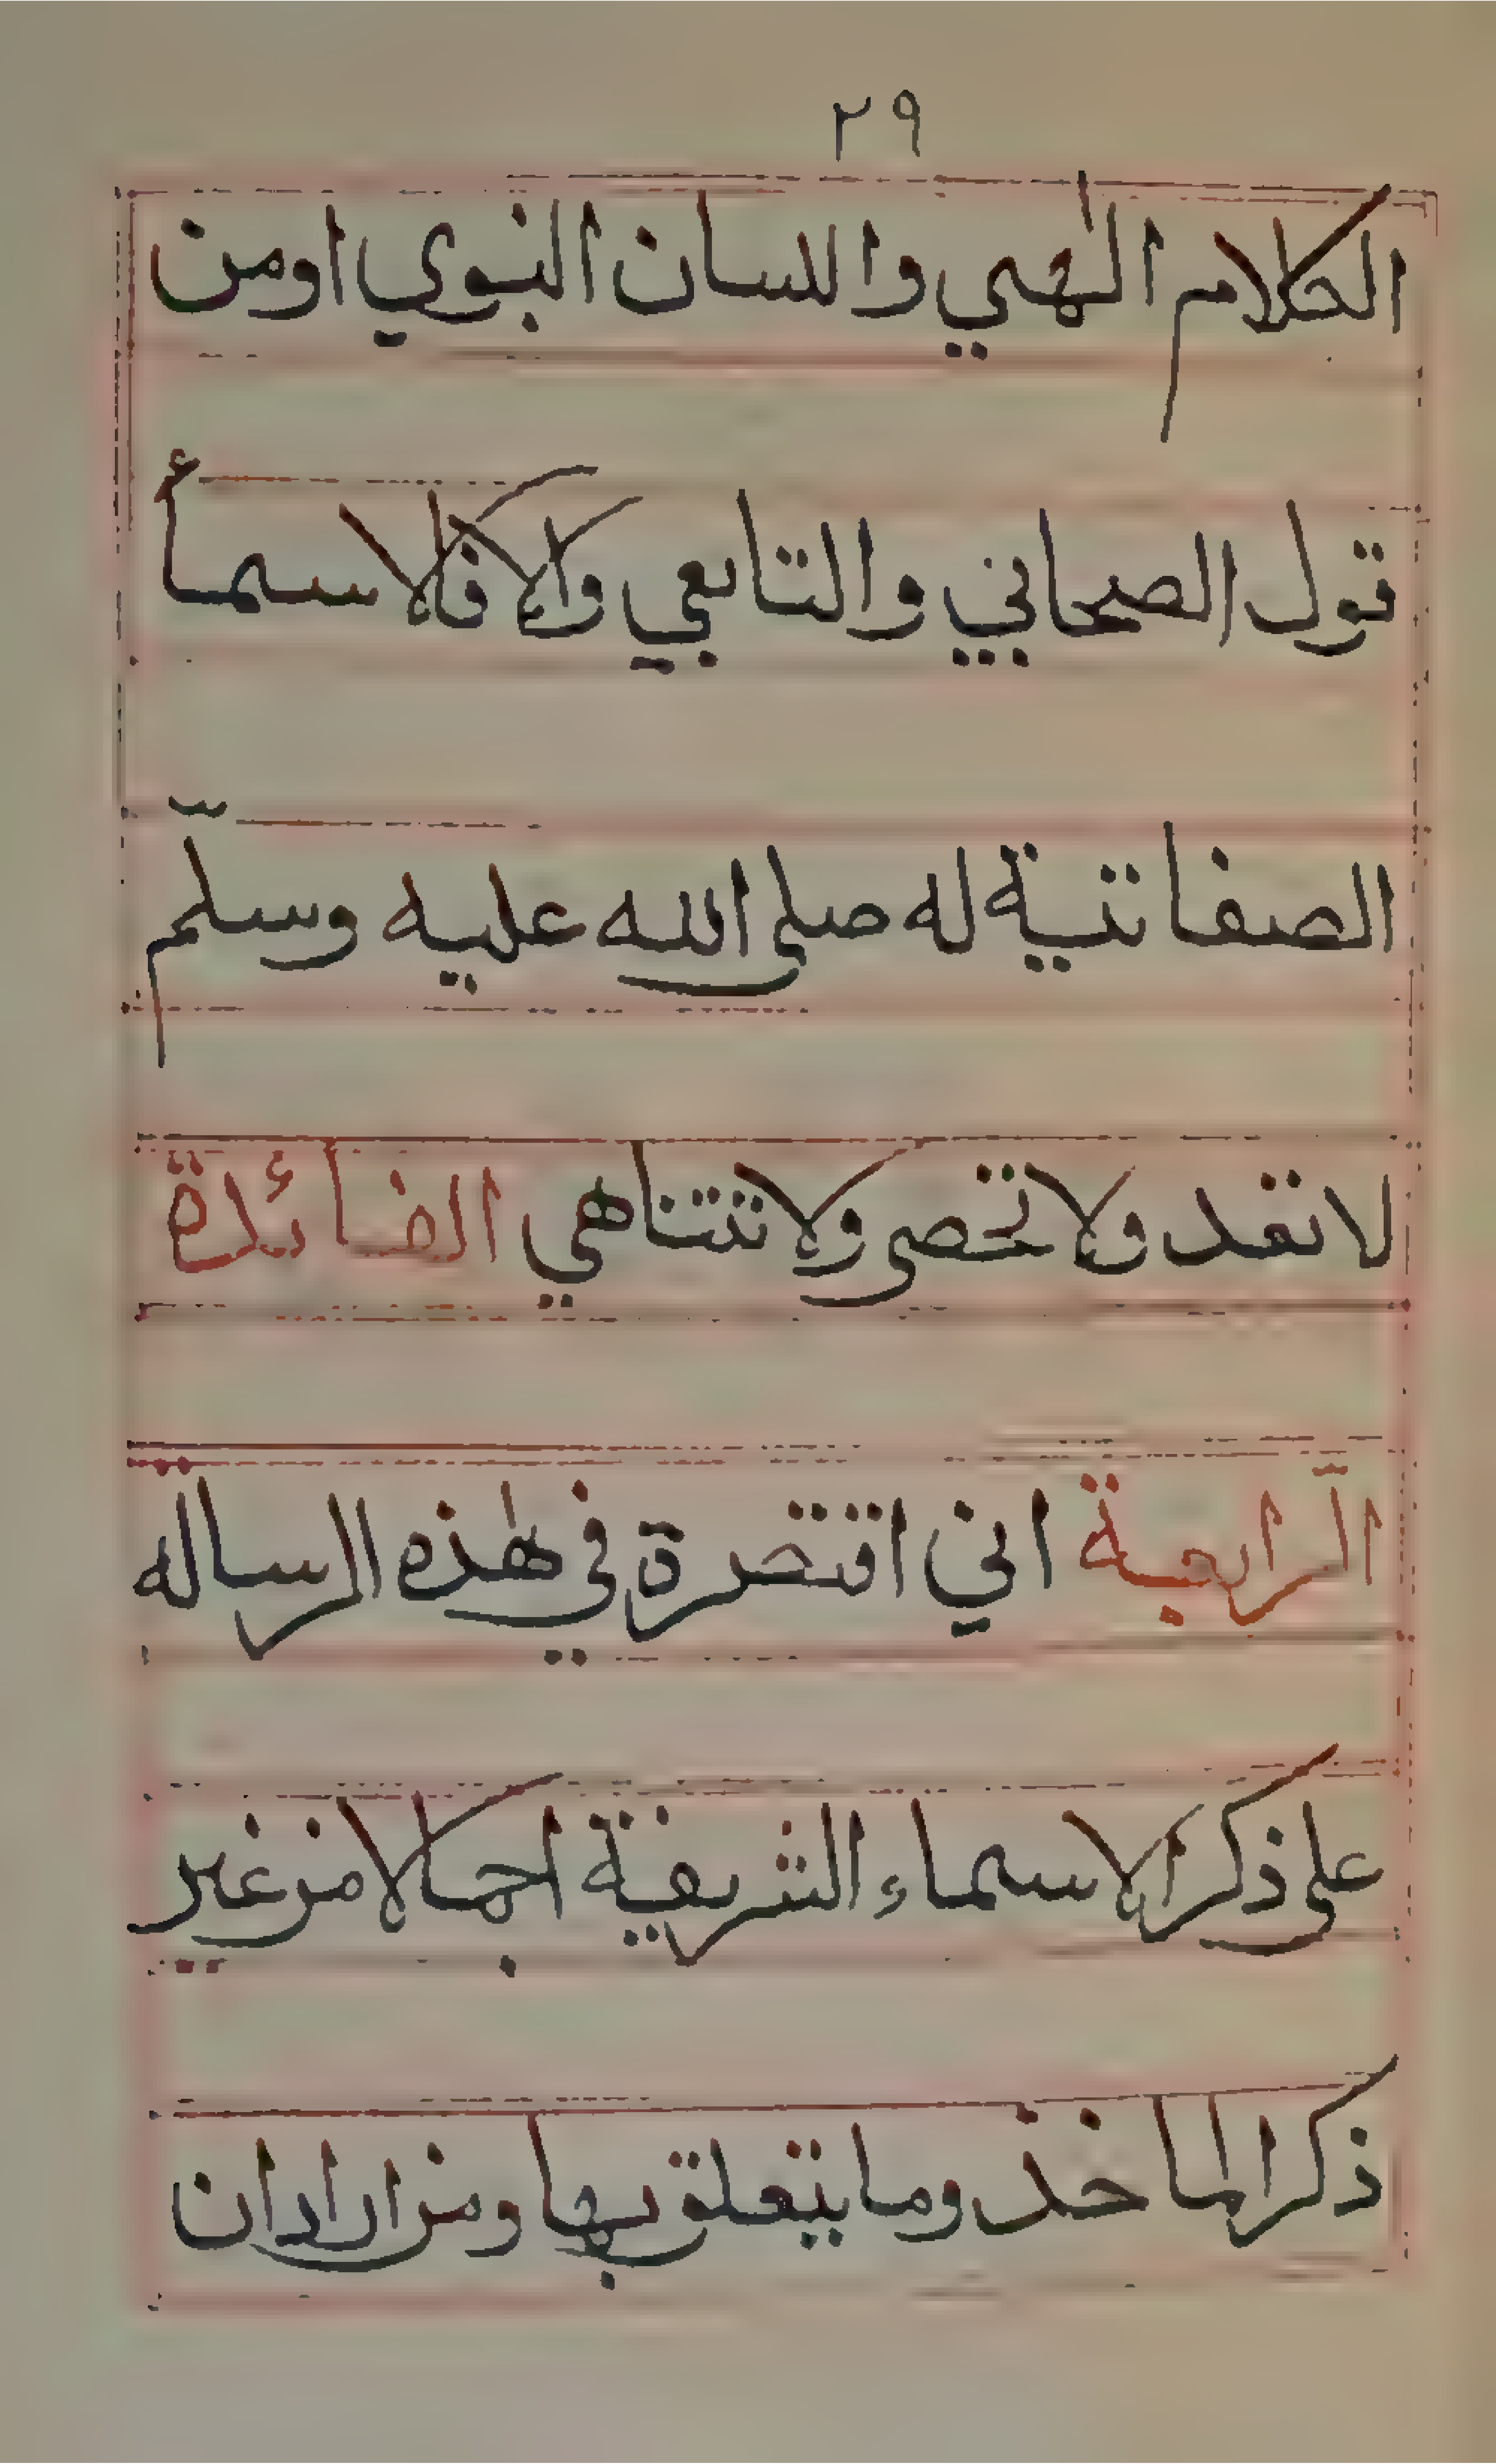 ٢٩
الكلام الٰهي واللسان النبوي اومن
قول الصحابي والتابعي والا فالاسمأ
الصفاتية له صلى الله عليه وسلّم
لا تعد ولا تحصى ولا تتناهى الفائدة
الرّابعة اني اقتصرة في هٰذه الرساله
على ذكر الاسماء الشريفة اجمالا من غير
ذكر الماخذ وما يتعلق بها ومن اراد ان